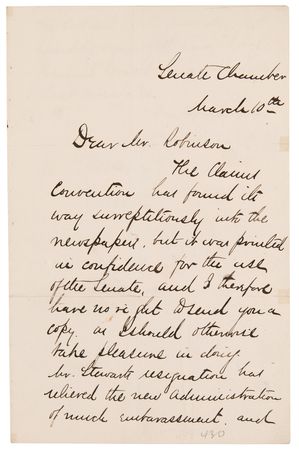 Senate Chamber
March 10th
Dear Mr. Robinson
The Claims
Convention has found its
way surreptitiously into the
newspapers, but it was printed
in confidence for the use
of the Senate, and I therefore
have no right to send you a
copy, as I should otherwise
take pleasure in doing
Mr. Stewarts resignation has
relieved the new Administration
of much embarassment, and
430